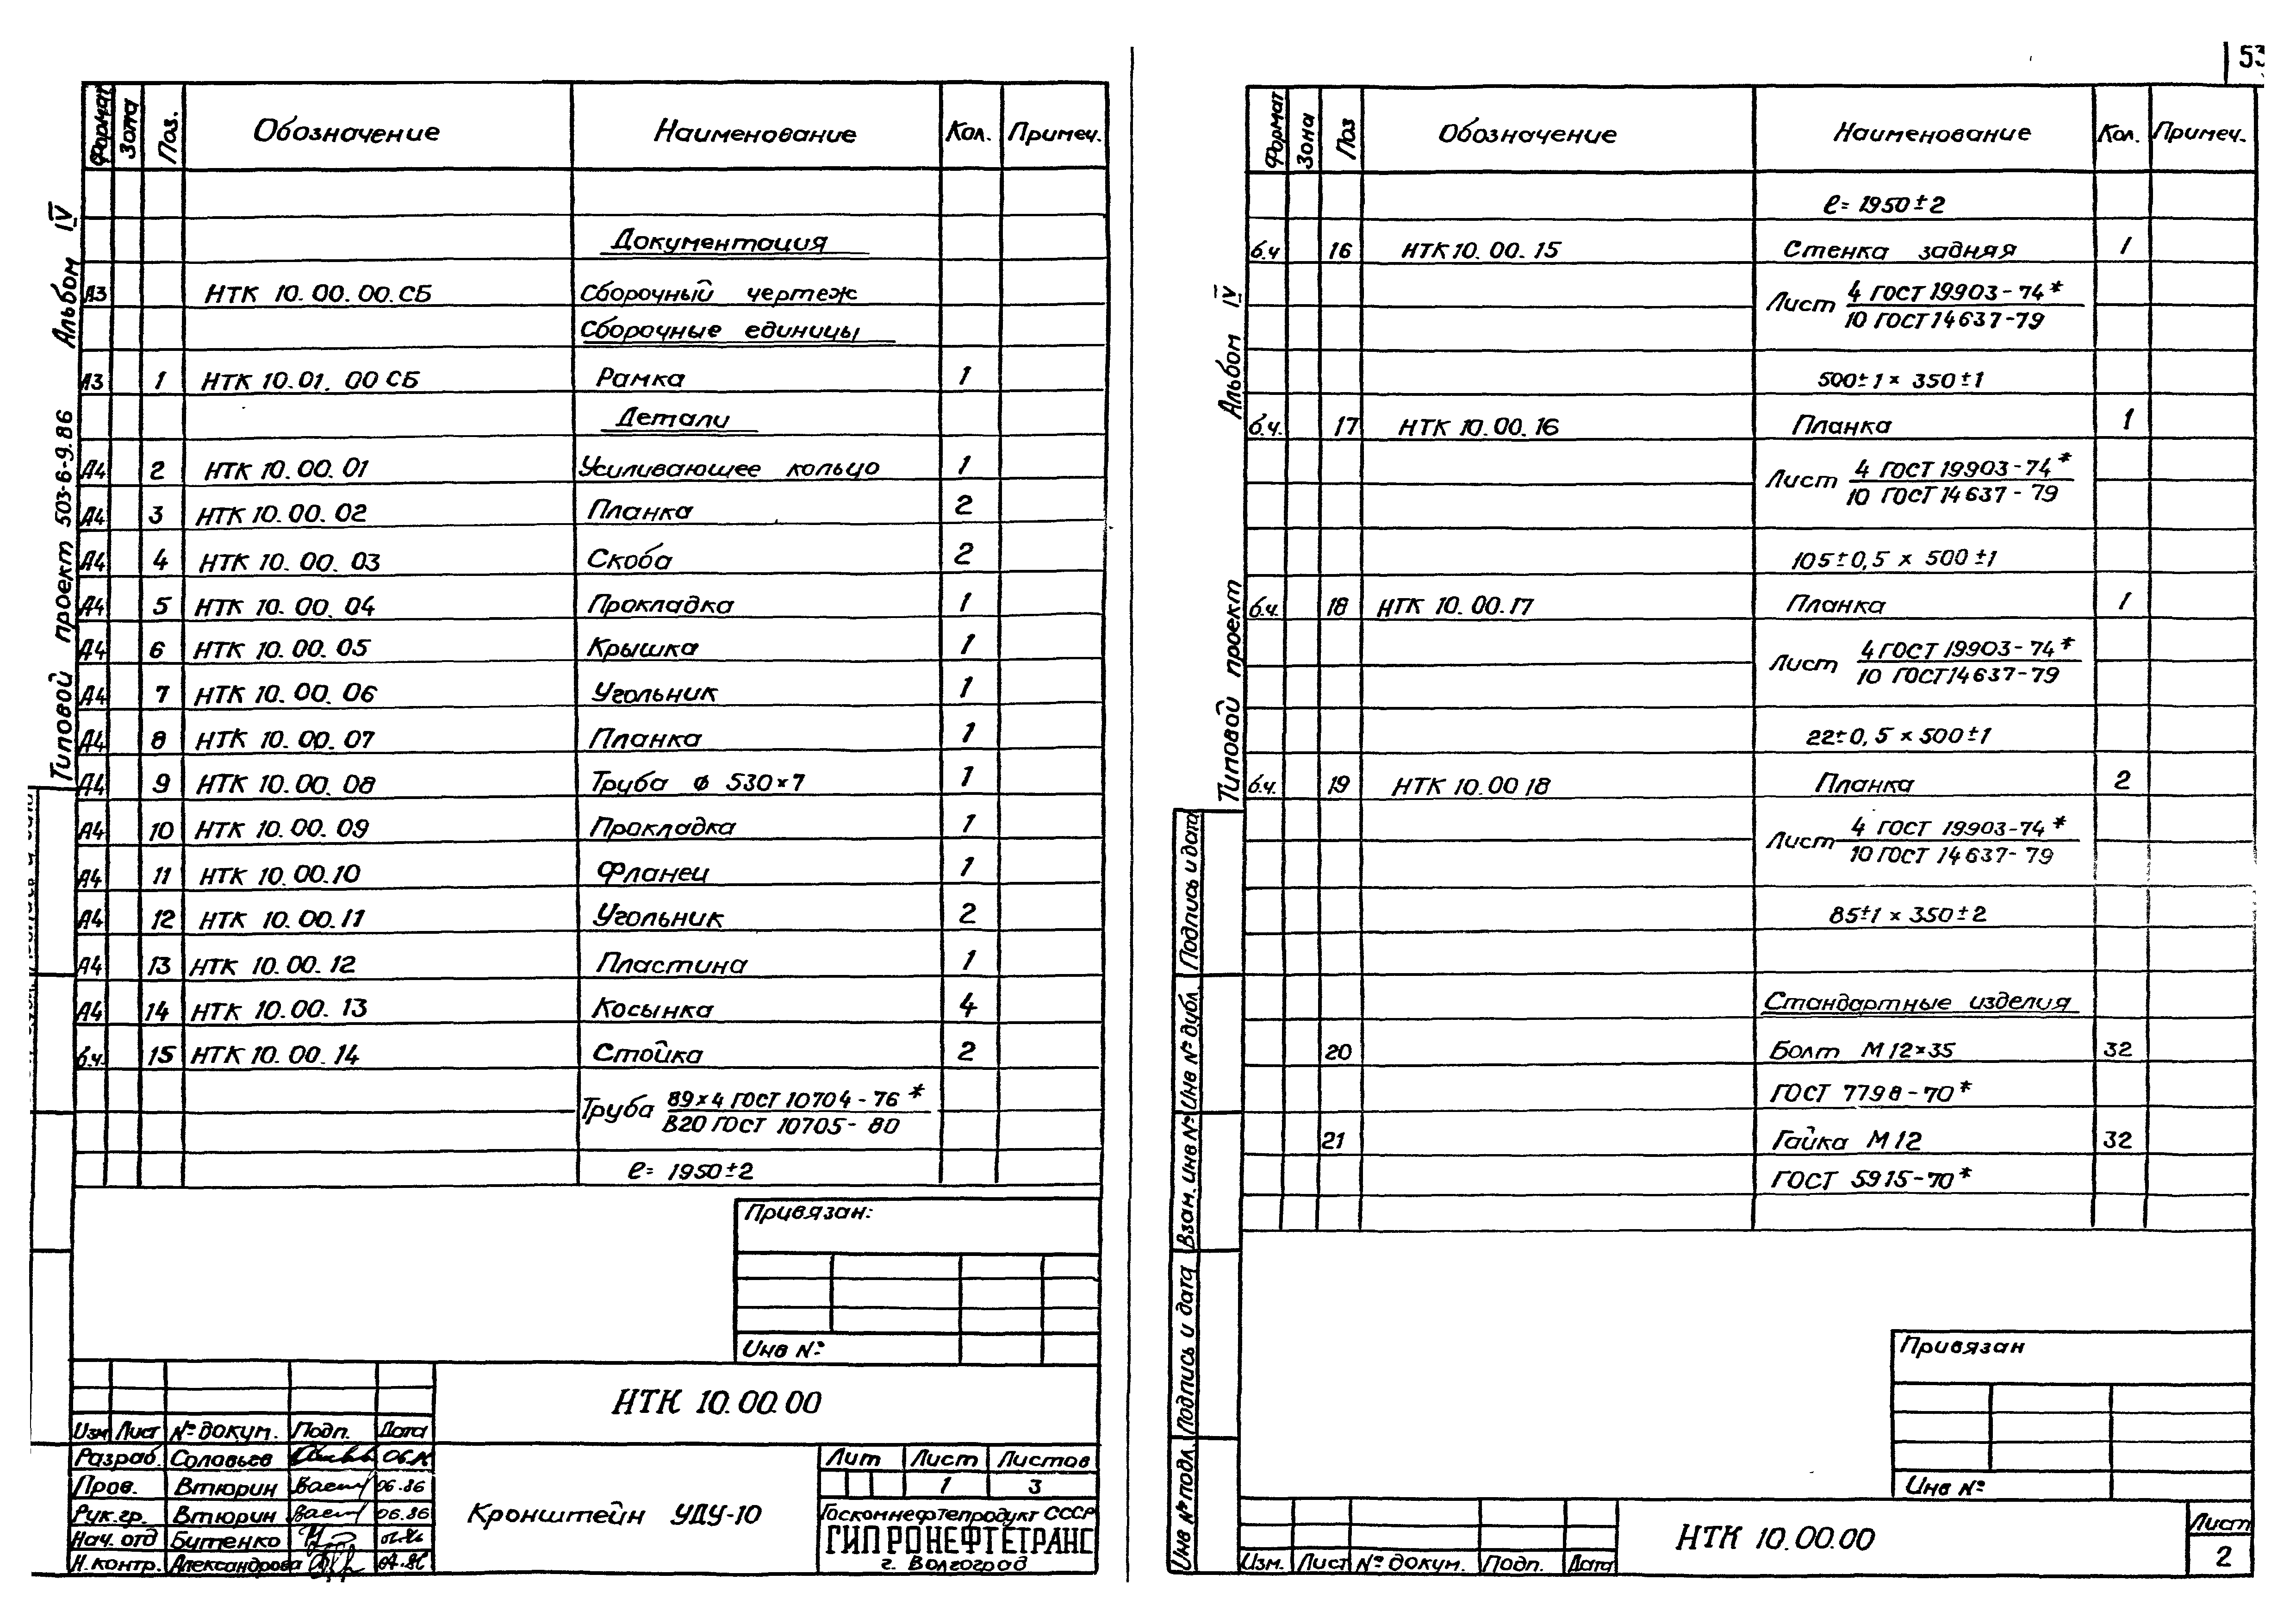 53
Альбом IV
Типовой проект 503-6-9.86
Формат Зона Поз. Обозначение Наименование Кол. Примеч.
Документация
А3 НТК 10.00.00.СБ Сборочный чертеж
Сборочные единицы
А3 1 НТК 10.01.00 СБ Рамка 1
Детали
А4 2 НТК 10.00.01 Усиливающее кольцо 1
А4 3 НТК 10.00.02 Планка 2
А4 4 НТК 10.00.03 Скоба 2
А4 5 НТК 10.00.04 Прокладка 1
А4 6 НТК 10.00.05 Крышка 1
А4 7 НТК 10.00.06 Угольник 1
А4 8 НТК 10.00.07 Планка 1
А4 9 НТК 10.00.08 Труба ф 530×7 1
А4 10 НТК 10.00.09 Прокладка 1
А4 11 НТК 10.00.10 Фланец 1
А4 12 НТК 10.00.11 Угольник 2
А4 13 НТК 10.00.12 Пластина 1
А4 14 НТК 10.00.13 Косынка 4
б.ч. 15 НТК 10.00.14 Стойка 2
Труба 89×4 ГОСТ 10704-76*
В20 ГОСТ 10705-80
ℓ= 1950±2
Привязан:
Инв №
НТК 10.00.00
Изм Лист № докум. Подп. Дата
Разраб. Соловьев
Пров. Втюрин 06.86
Рук.гр. Втюрин 06.86
Нач. отд Бутенко
Н.контр. Александрова
Кронштейн УДУ-10
Лит Лист Листов
1 3
Госкомнефтепродукт СССР
ГИПРОНЕФТЕТРАНС
г. Волгоград
Альбом IV
Типовой проект
Формат Зона Поз Обозначение Наименование Кол. Примеч.
ℓ= 1950±2
б.ч 16 НТК 10.00.15 Стенка задняя 1
Лист 4 ГОСТ 19903-74*
10 ГОСТ 14637-79
500±1× 350±1
б.ч. 17 НТК 10.00.16 Планка 1
Лист 4 ГОСТ 19903-74*
10 ГОСТ 14637-79
105±0,5 × 500±1
б.ч. 18 НТК 10.00.17 Планка 1
Лист 4 ГОСТ 19903-74*
10 ГОСТ 14637-79
22±0,5×500±1
б.ч. 19 НТК 10.00 18 Планка 2
Лист 4 ГОСТ 19903-74*
10 ГОСТ 14637-79
85±1 × 350±2
Стандартные изделия
20 Болт М12×35 32
ГОСТ 7798-70*
21 Гайка М12 32
ГОСТ 5915-70*
Подпись и дата
Инв № дубл.
Взам. инв №
Подпись и дата
Инв № подл.
Привязан
Инв №
Изм. Лист № докум. Подп. Дата
НТК 10.00.00
Лист
2